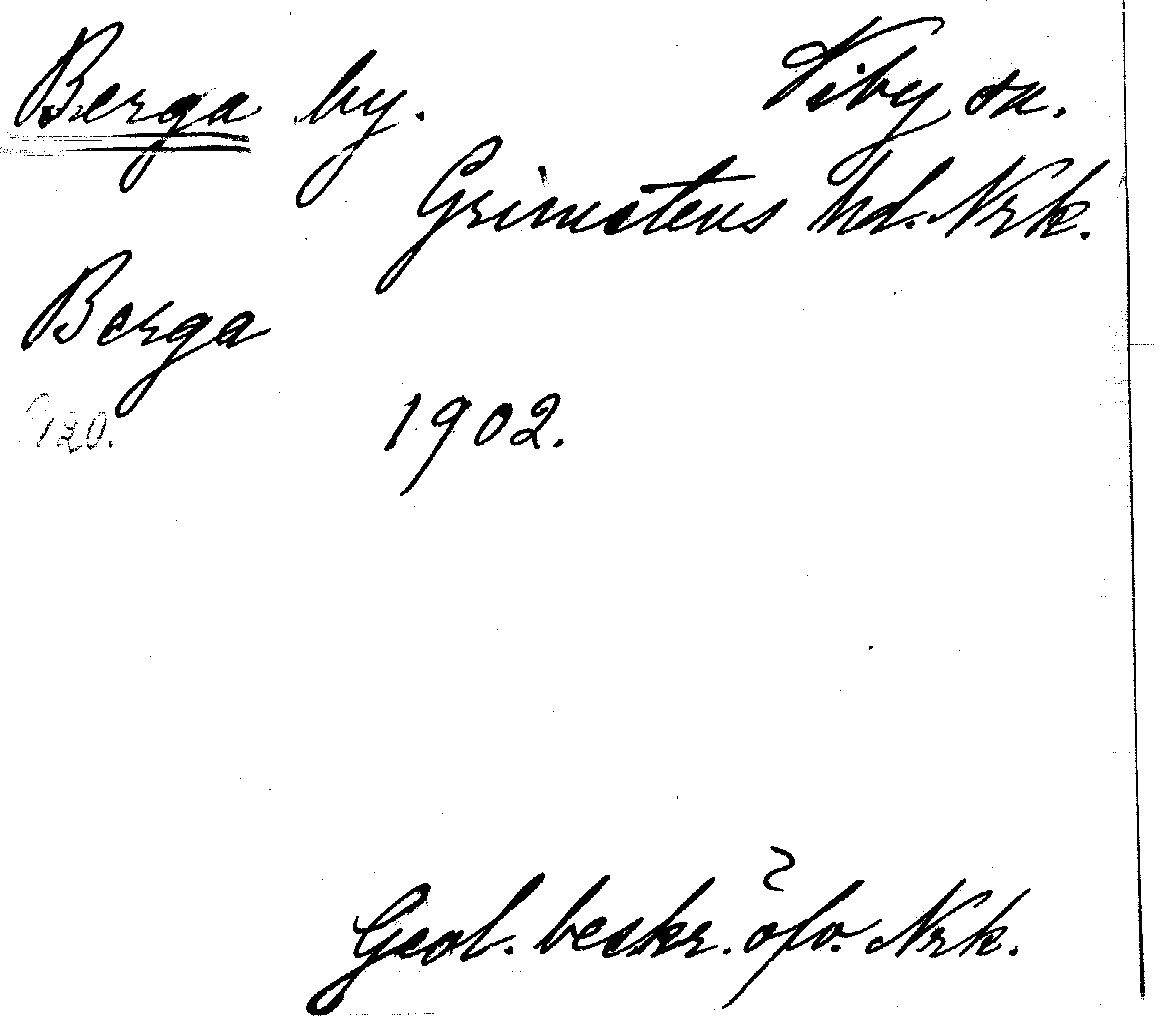 Berga by. Viby sn.
Grimstens hd. Nrk.
Berga
120. 1902.
Geol. beskr. öfv. Nrk.